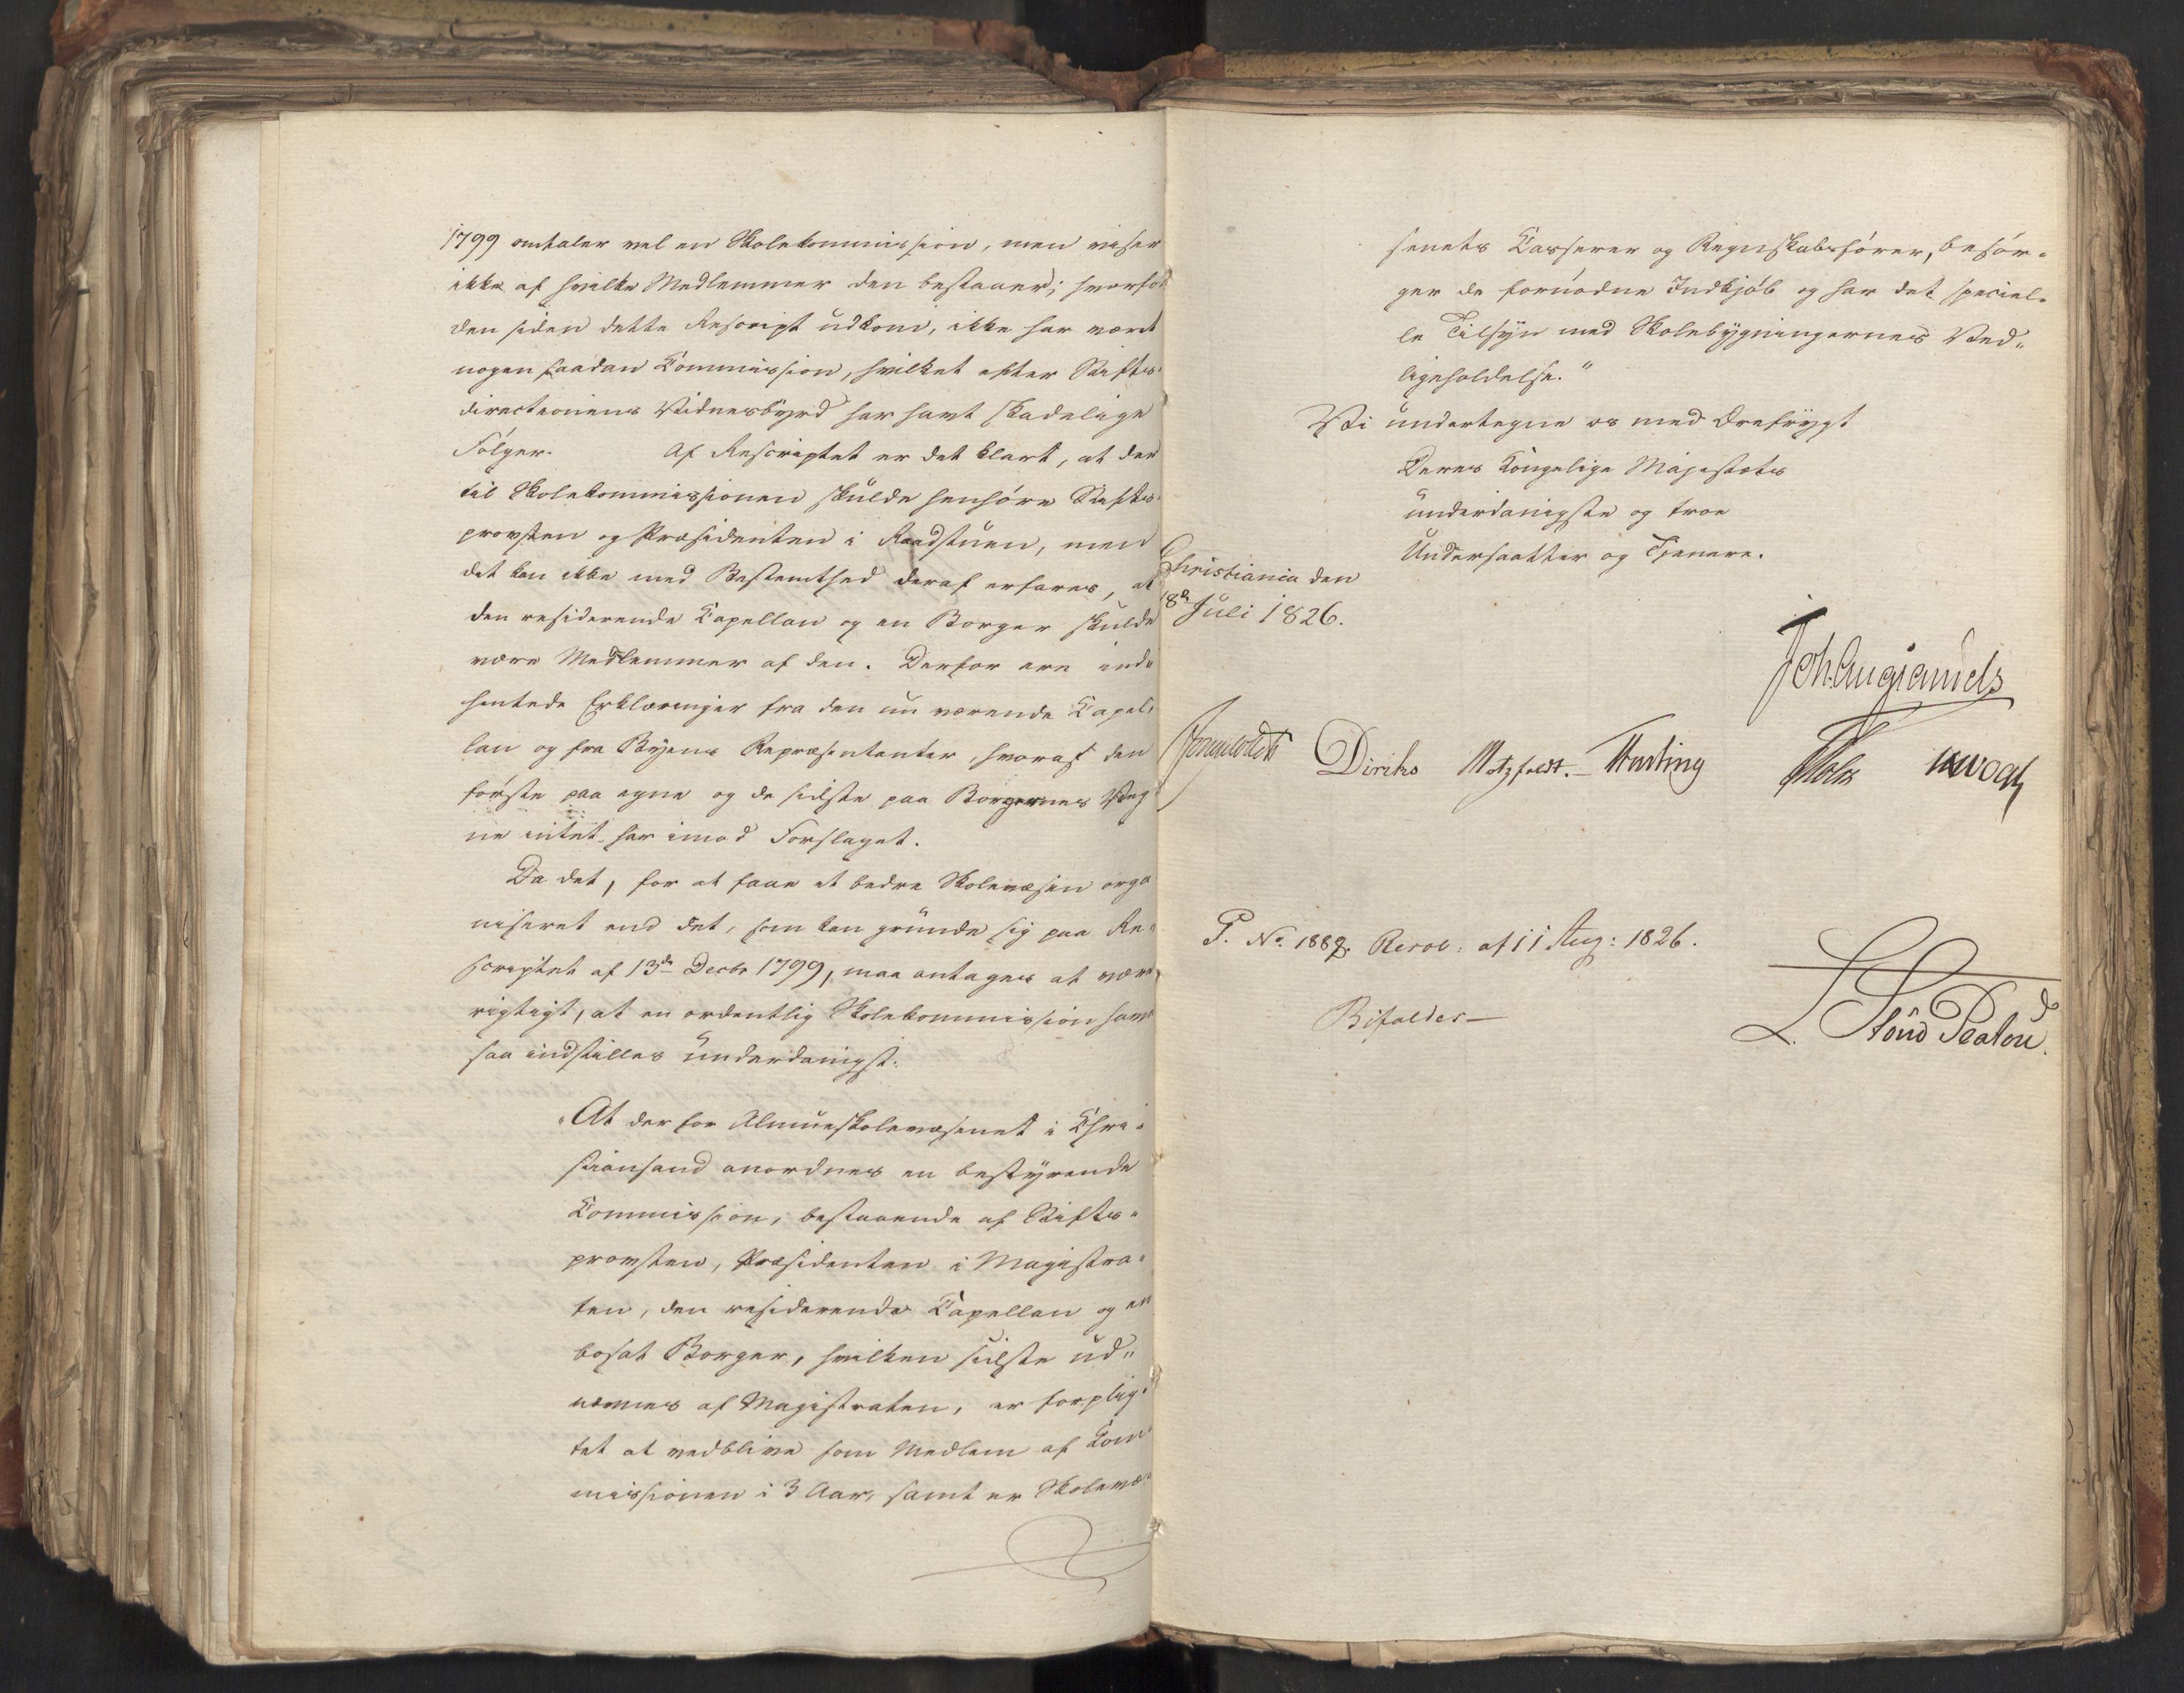 1799 omtaler vel en Skolekommission, men viser
ikke af hvilke Medlemmer den bestaaer; hvorfor
den siden dette Rescript udkom, ikke har været
nogen saadan Commission, hvilket efter Stifts-
directionens Vidnesbyrd har havt skadelige
Følger. Af Rescriptet er det klart, at der
til Skolekommissionen skulde henhøre Stifts-
provsten og Præsidenten i Raadstuen, men
det kan ikke med Bestemthed deraf erfares, at
den residerende Capellan og en Borger skulde
være Medlemmer af den. Derfor ere ind-
hentede Erklæringer fra den nu værende Capel-
lan og fra Byens Repræsentanter, hvoraf den
første paa egne og de sidste paa Borgernes Veg-
ne intet har imod Forslaget.
Da det, for at faae et bedre Skolevæsen orga
niseret end det, som kan grunde sig paa Re-
scriptet af 13de Decbr 1799, maa antages at være
rigtigt, at en ordentlig Skolekommission haves
saa indstilles underdanigst:
"At der for Almueskolevæsenet i Chri-
stiansand anordnes en bestyrende
Commission, bestaaende af Stifts-
provsten, Præsidenten i Magistra-
ten, den residerende Capellan og en
bosat Borger, hvilken sidste ud-
nævnes af Magistraten, er forplig-
tet at vedblive som Medlem af Com
missionen i 3 Aar, samt er Skolevæ-
senets Casserer og Regnskabsfører, besør-
ger de fornødne Indkjøb og har det speciel-
le Tilsyn med Skolebygningernes Ved-
ligeholdelse."
Vi undertegne os med Ærefrygt
Deres Kongelige Majestæts
underdanigste og troe
Undersaatter og Tjenere.
Christiania den
18de Juli 1826.
Diriks Motzfeldt. Treschow Holst
P. No. 1882. Resol: af 11 Aug: 1826.
Bifaldes
L. Stoud Platou.